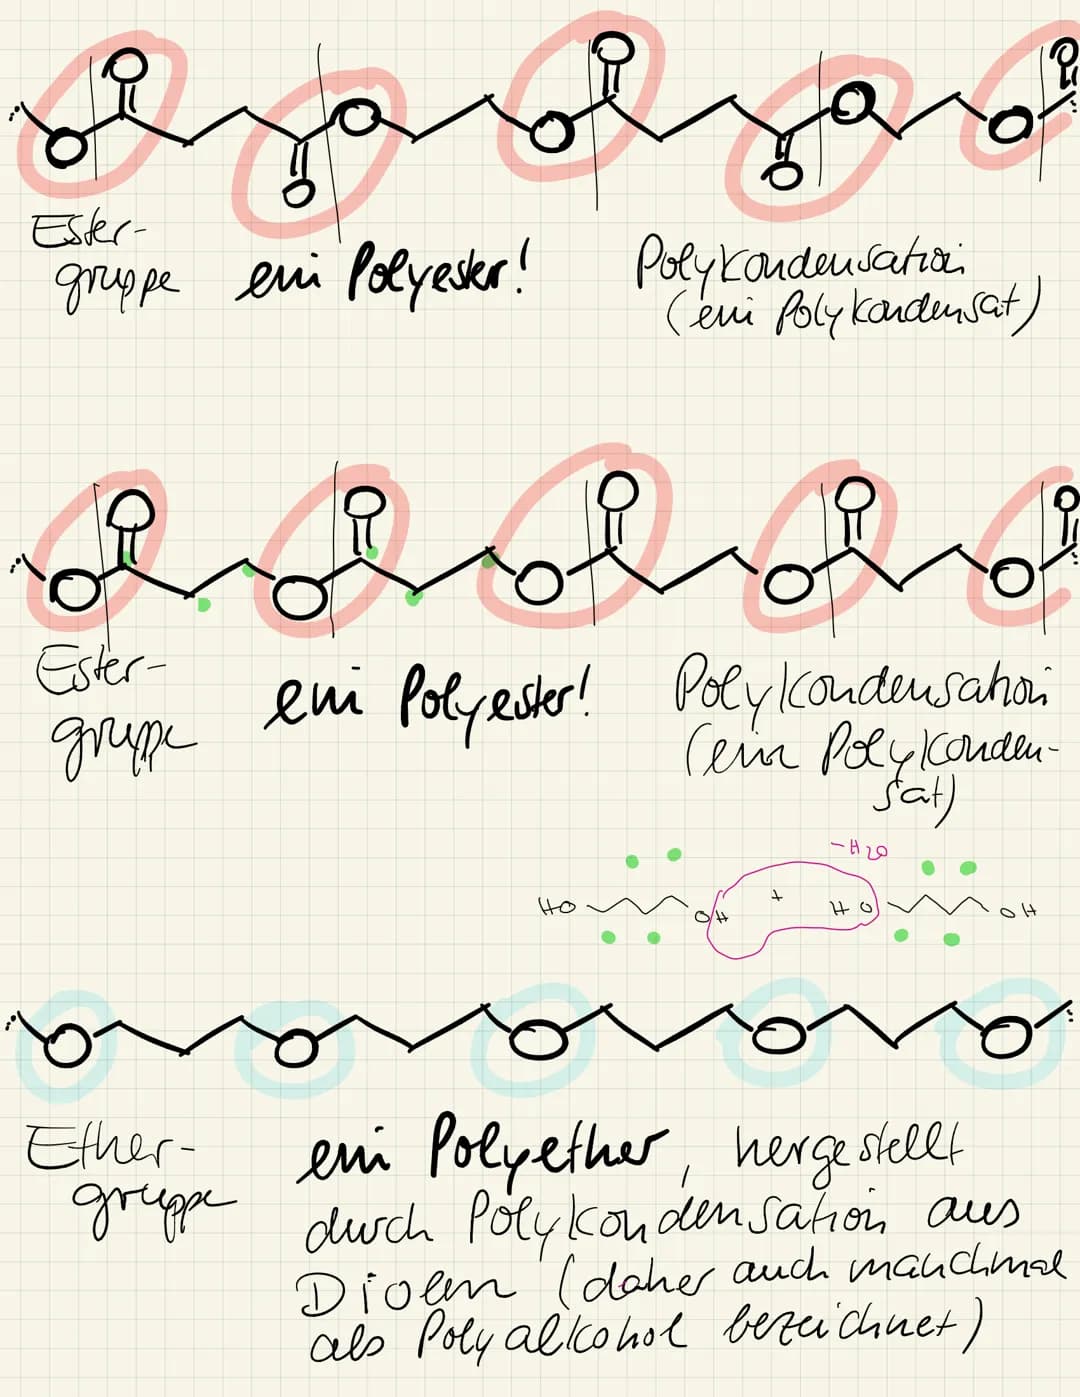 O O O O O
O O O O O
Ester-
gruppe ein Polyester! Polykondensation
(ein Polykondensat)
O O O O O
O O O O O
Ester-
gruppe ein Polyester! Polykondensation
(ein Polykonden-
sat)
-H2O
HO OH + HO OH
O O O O O
Ether-
gruppe ein Polyether, hergestellt
durch Polykondensation aus
Diolen (daher auch manchmal
als Polyalkohol bezeichnet)